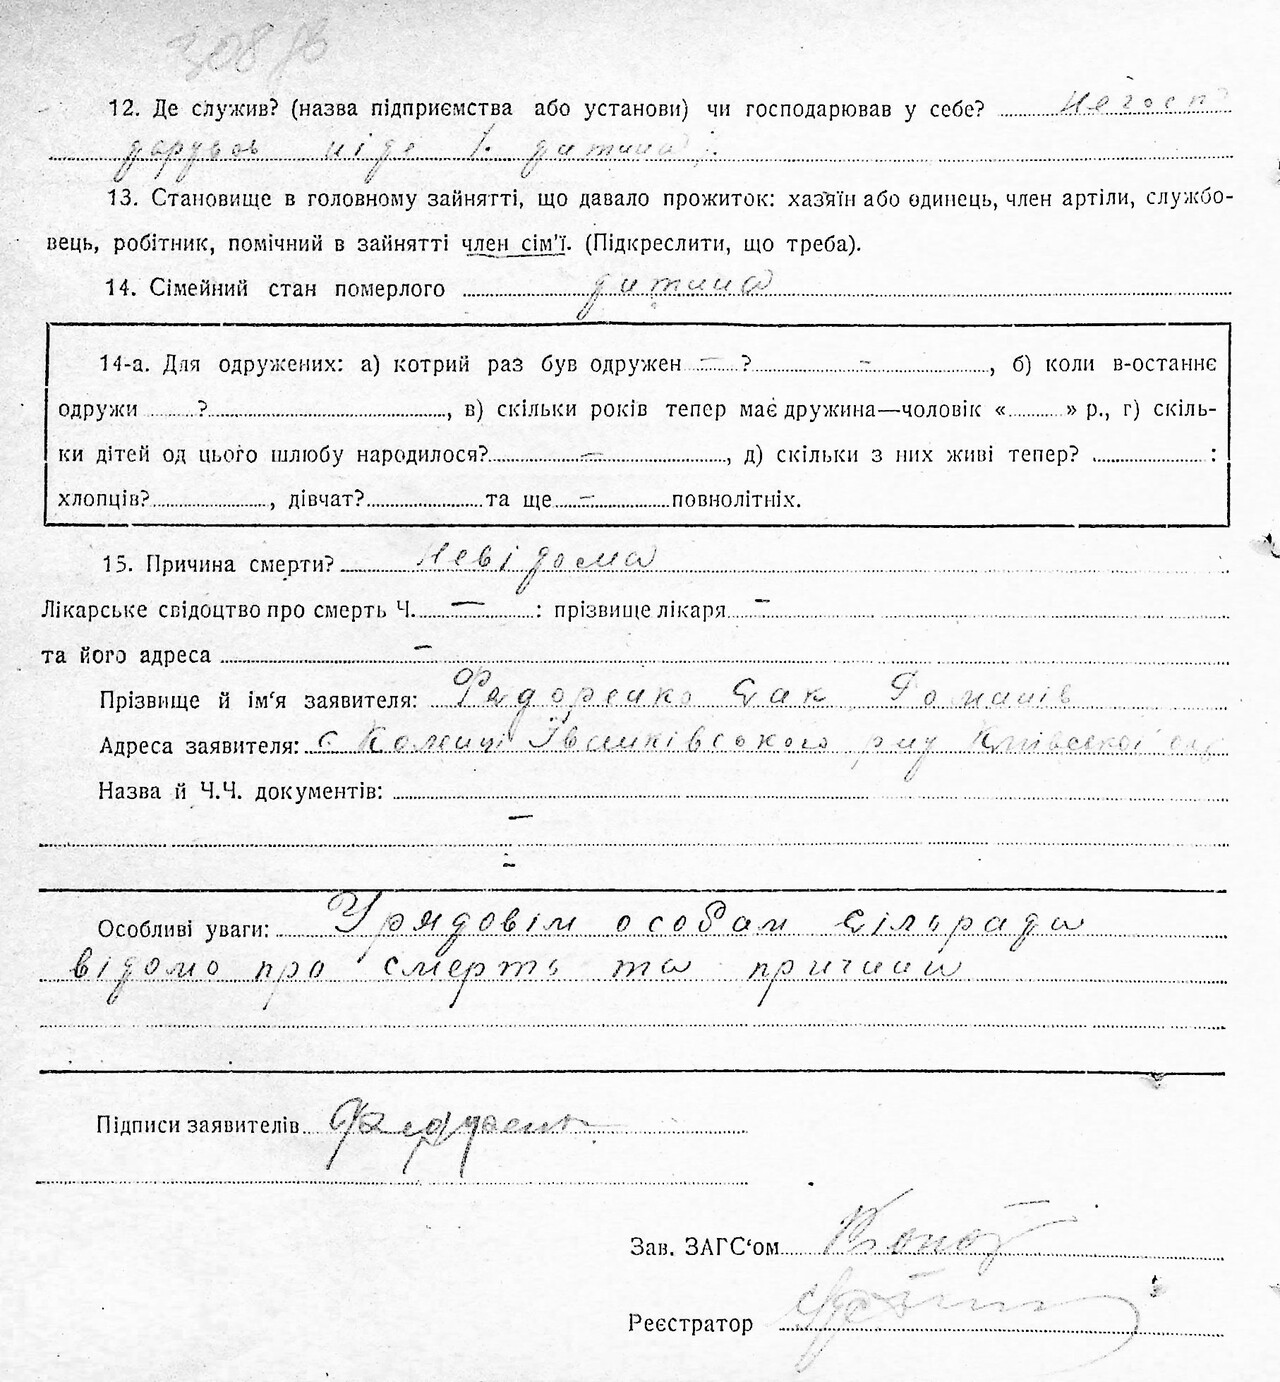 12. Де служив? (назва підприємства або установи) чи господарював у себе? Негоспо
дарував ніде дитина
13. Становище в головному зайнятті, що давало прожиток: хазяїн або одинець, член артіли, службо-
вець, робітник, помічний в зайнятті член сім'ї. (Підкреслити, що треба).
14. Сімейний стан померлого дитина
14-а. Для одружених: а) котрий раз був одружен — ? –, б) коли в-останнє
одружи ?, в) скільки років тепер має дружина—чоловік «» р., г) скіль-
ки дітей од цього шлюбу народилося? –, д) скільки з них живі тепер? :
хлопців?, дівчат? та ще – повнолітніх.
15. Причина смерти? Невідома
Лікарське свідоцтво про смерть Ч. — : прізвище лікаря –
та його адреса –
Прізвище й ім'я заявителя: Федоренко Романів
Адреса заявителя: с Іванківського р-ну Київської
Назва й Ч.Ч. документів:
–
–
Особливі уваги: Урядовім особам сільради
відомо про смерть та причини
Підписи заявителів
Зав. ЗАГС'ом
Реєстратор